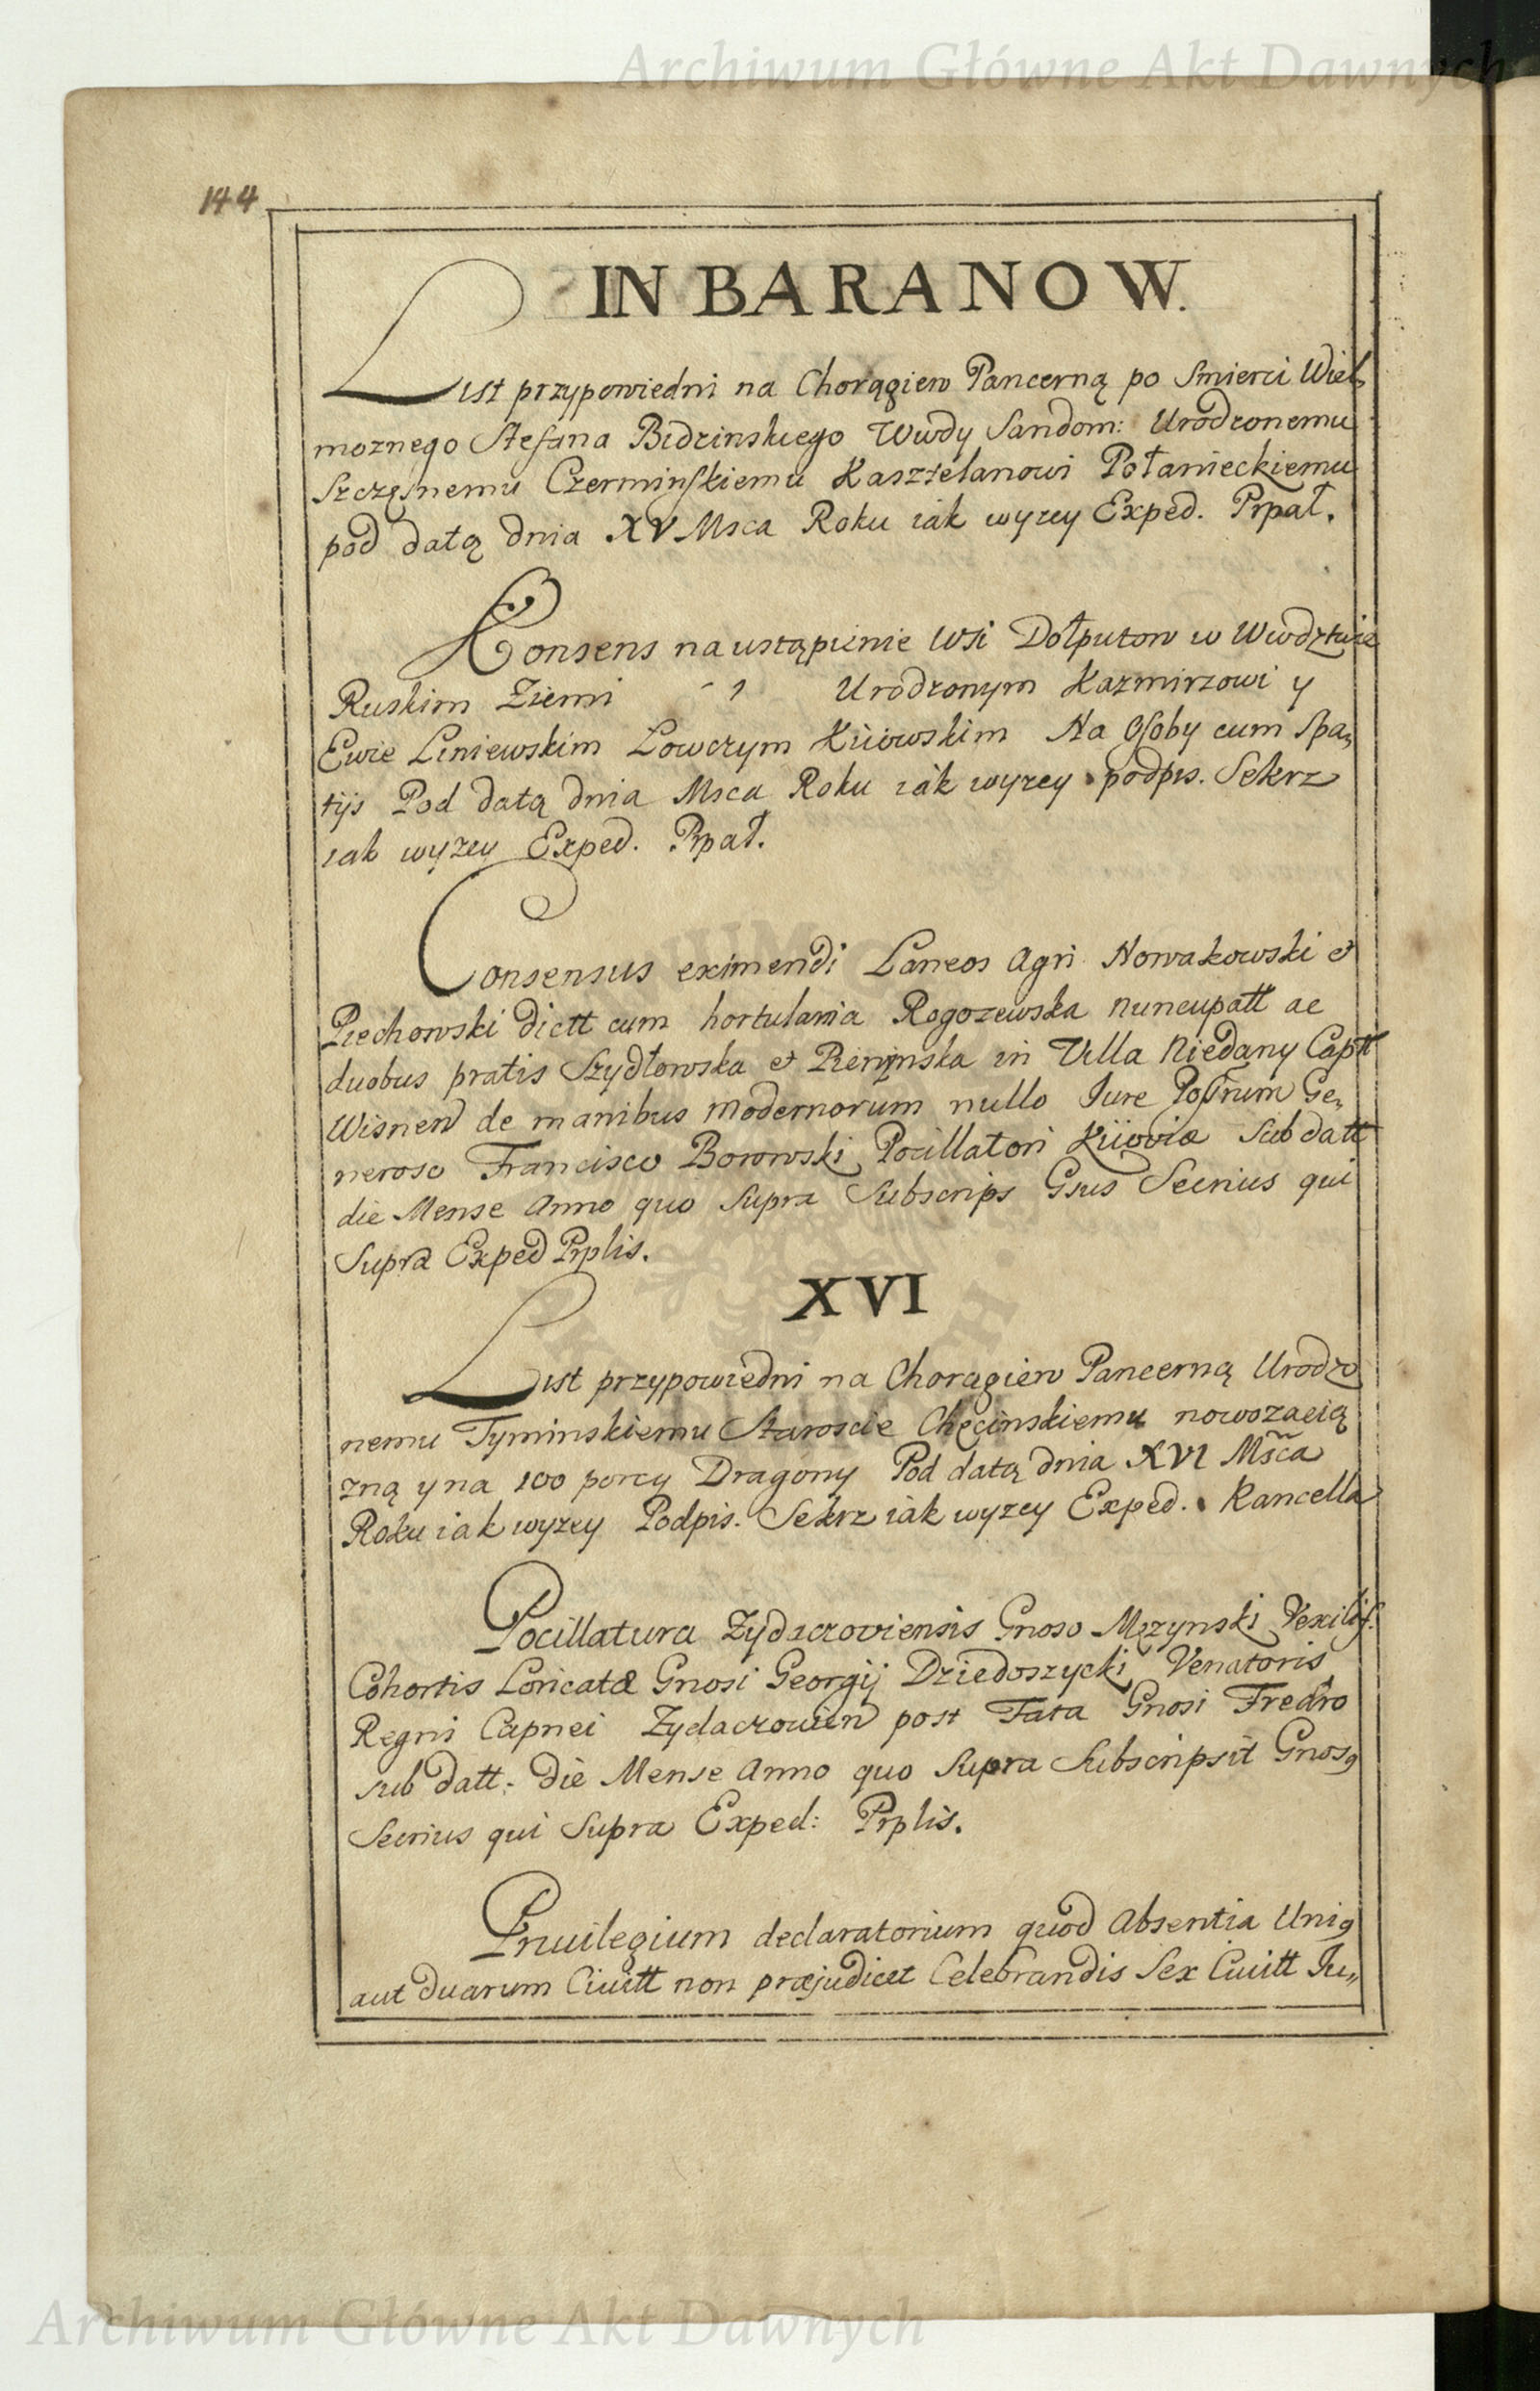 Archiwum Główne Akt Dawnych
144
IN BARANOW.
List przypowiedni na Chorągiew Pancerną po Smierci Wiel,
moznego Stefana Bidzinskiego Wwdy Sandom: Urodzonemu
Szczęsnemu Czerminskiemu Kasztelanowi Połanieckiemu
pod datą dnia XV Msca Roku iak wyzey Exped. Prpał.
Konsens na ustąpienie Wsi Dołputow w Wwdztwie
Ruskim Ziemi Urodzonym Kazmirzowi y
Ewie Liniewskim Łowczym Kiiowskim Na Osoby cum Spa,
tijs Pod datą dnia Msca Roku iak wyzey podpis. Sekrz
iak wyzey Exped. Prpał.
Consensus eximendi Laneos Agri Nowakowski et
Piechowski dictt cum hortulania Rogozewska nuncupatt ac
duobus pratis Szydłowska et Pieninska in Villa Niedany Captt
Wisnen de manibus modernorum nullo Jure Possrum Ge,
neroso Francisco Borowski Pocillatori Kiioviæ Sub datt
die Mense Anno quo Supra Subscrips Gsus Secrius qui
Supra Exped Prplis.
XVI
List przypowiedni na Choragiew Pancerną Urodzo
nemu Tyminskiemu Staroscie Chęcinskiemu nowozacią
zną y na 100 porcy Dragony Pod datą dnia XVI Msca
Roku iak wyzey Podpis. Sekrz iak wyzey Exped. Kancella
Pocillatura Zydaczoviensis Gnoso Mezynski Vexilif:
Cohortis Loricatæ Gnosi Georgij Dziedoszycki Venatoris
Regni Capnei Zydaczowien post Fata Gnosi Fredro
sub datt: die Mense Anno quo Supra Subscripsit Gnosq
Secrius qui Supra Exped: Prplis.
Priuilegium declaratorium quod Absentia Uniq
aut duarum Ciuitt non præjudicet Celebrandis Sex Ciuitt Ju,,
Archiwum Główne Akt Dawnych